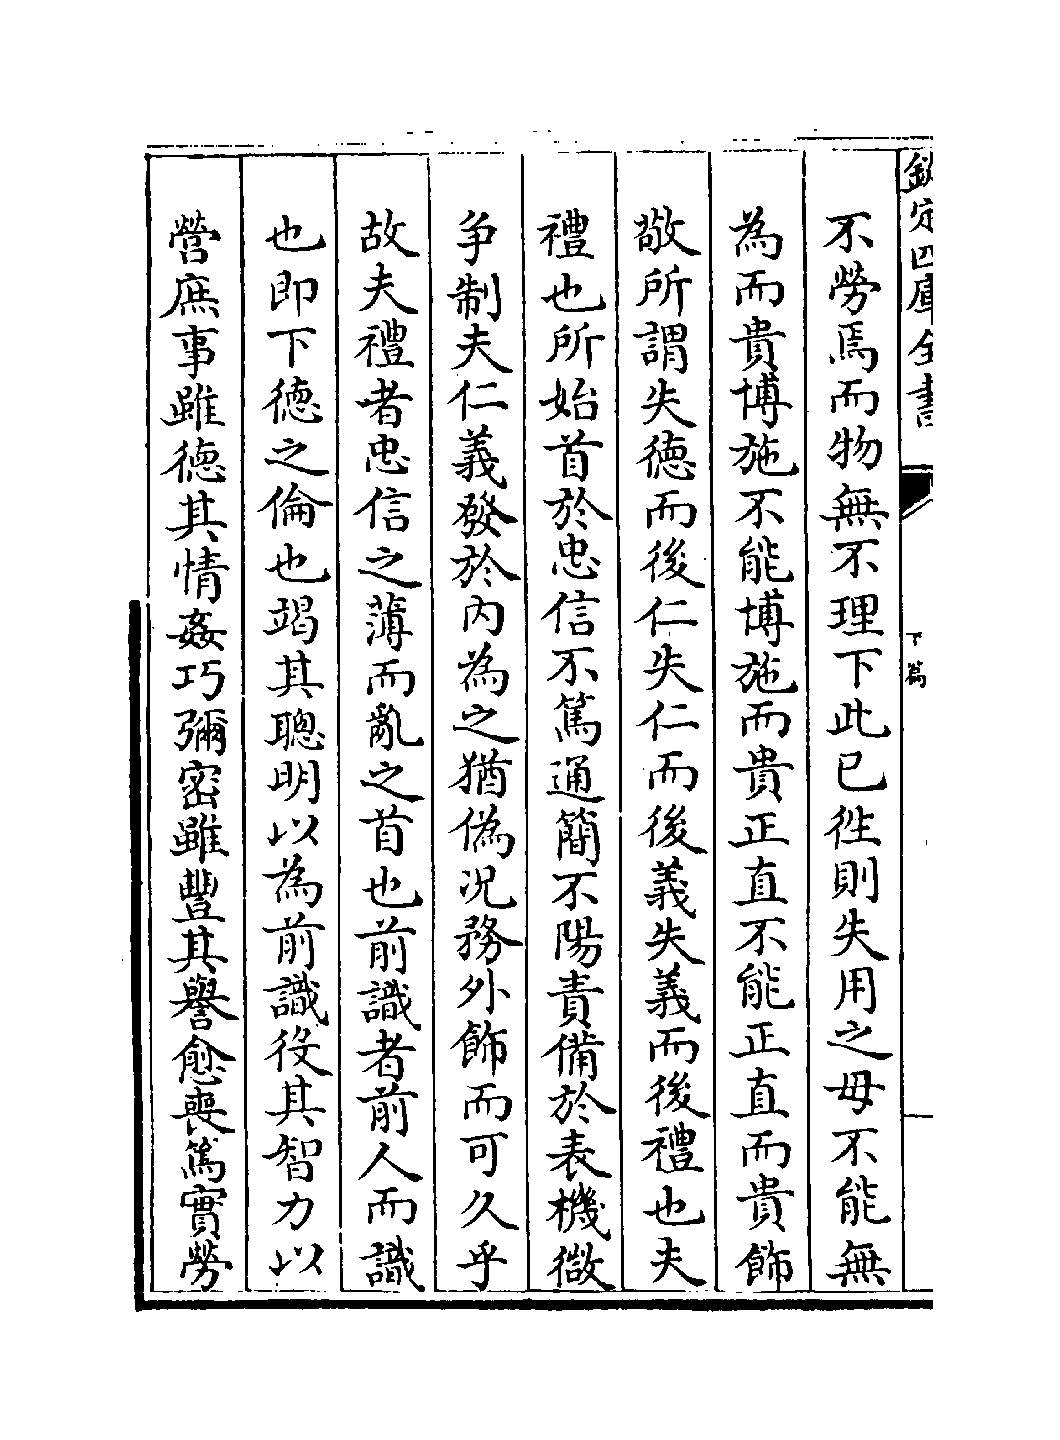 欽定四庫全書
下篇
不勞焉而物無不理下此已徃則失用之母不能無
為而貴博施不能博施而貴正直不能正直而貴飾
敬所謂失徳而後仁失仁而後義失義而後禮也夫
禮也所始首於忠信不篤通簡不陽責備於表機微
争制夫仁義發於内為之猶偽况務外飾而可久乎
故夫禮者忠信之薄而亂之首也前識者前人而識
也即下徳之倫也竭其聰明以為前識役其智力以
營庶事雖德其情姦巧彌密雖豐其譽愈喪篤實勞